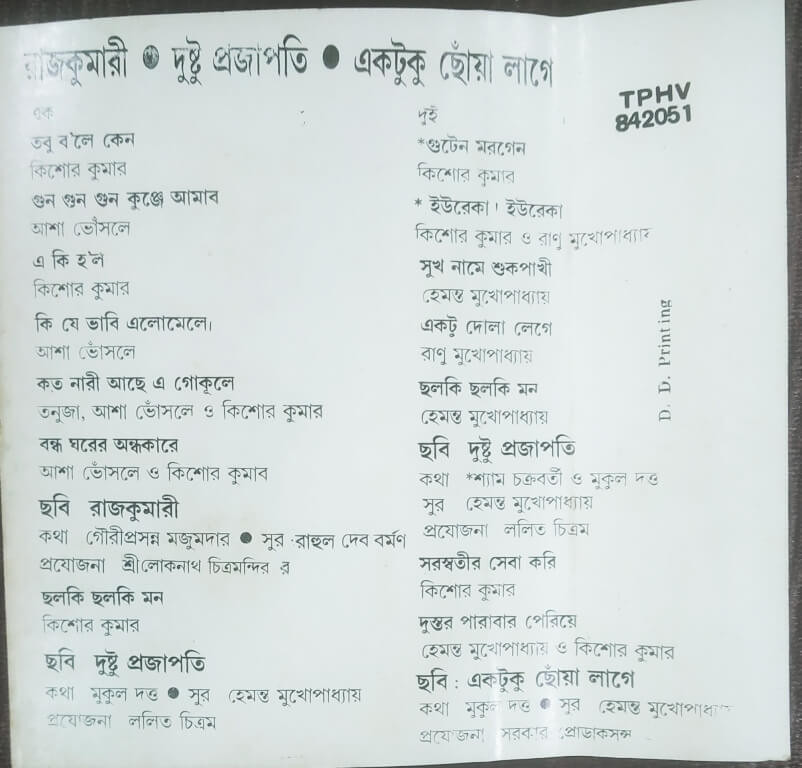 রাজকুমারী ● দুষ্টু প্রজাপতি ● একটুকু ছোঁয়া লাগে
TPHV
842051
এক
তবু ব'লে কেন
কিশোর কুমার
গুন গুন গুন কুঞ্জে আমাব
আশা ভোঁসলে
এ কি হ'ল
কিশোর কুমার
কি যে ভাবি এলোমেলো
আশা ভোঁসলে
কত নারী আছে এ গোকূলে
তনুজা, আশা ভোঁসলে ও কিশোর কুমার
বন্ধ ঘরের অন্ধকারে
আশা ভোঁসলে ও কিশোর কুমাব
ছবি রাজকুমারী
কথা গৌরীপ্রসন্ন মজুমদার ● সুর রাহুল দেব বর্মণ
প্রযোজনা শ্রীলোকনাথ চিত্রমন্দির র
ছলকি ছলকি মন
কিশোর কুমার
ছবি দুষ্টু প্রজাপতি
কথা মুকুল দত্ত ● সুর হেমন্ত মুখোপাধ্যায়
প্রযোজনা ললিত চিত্রম
দুই
*গুটেন মরগেন
কিশোর কুমার
* ইউরেকা ' ইউরেকা
কিশোর কুমার ও রাণু মুখোপাধ্যায়
সুখ নামে শুকপাখী
হেমন্ত মুখোপাধ্যায়
একটু দোলা লেগে
রাণু মুখোপাধ্যায়
ছলকি ছলকি মন
হেমন্ত মুখোপাধ্যায়
ছবি দুষ্টু প্রজাপতি
কথা *শ্যাম চক্রবর্তী ও মুকুল দত্ত
সুর হেমন্ত মুখোপাধ্যায়
প্রযোজনা ললিত চিত্রম
সরস্বতীর সেবা করি
কিশোর কুমার
দুস্তর পারাবার পেরিয়ে
হেমন্ত মুখোপাধ্যায় ও কিশোর কুমার
ছবি : একটুকু ছোঁয়া লাগে
কথা মুকুল দত্ত ● সুর হেমন্ত মুখোপাধ্যায়
প্রযোজনা সরকার প্রোডাকসন্স
D. D. Printing